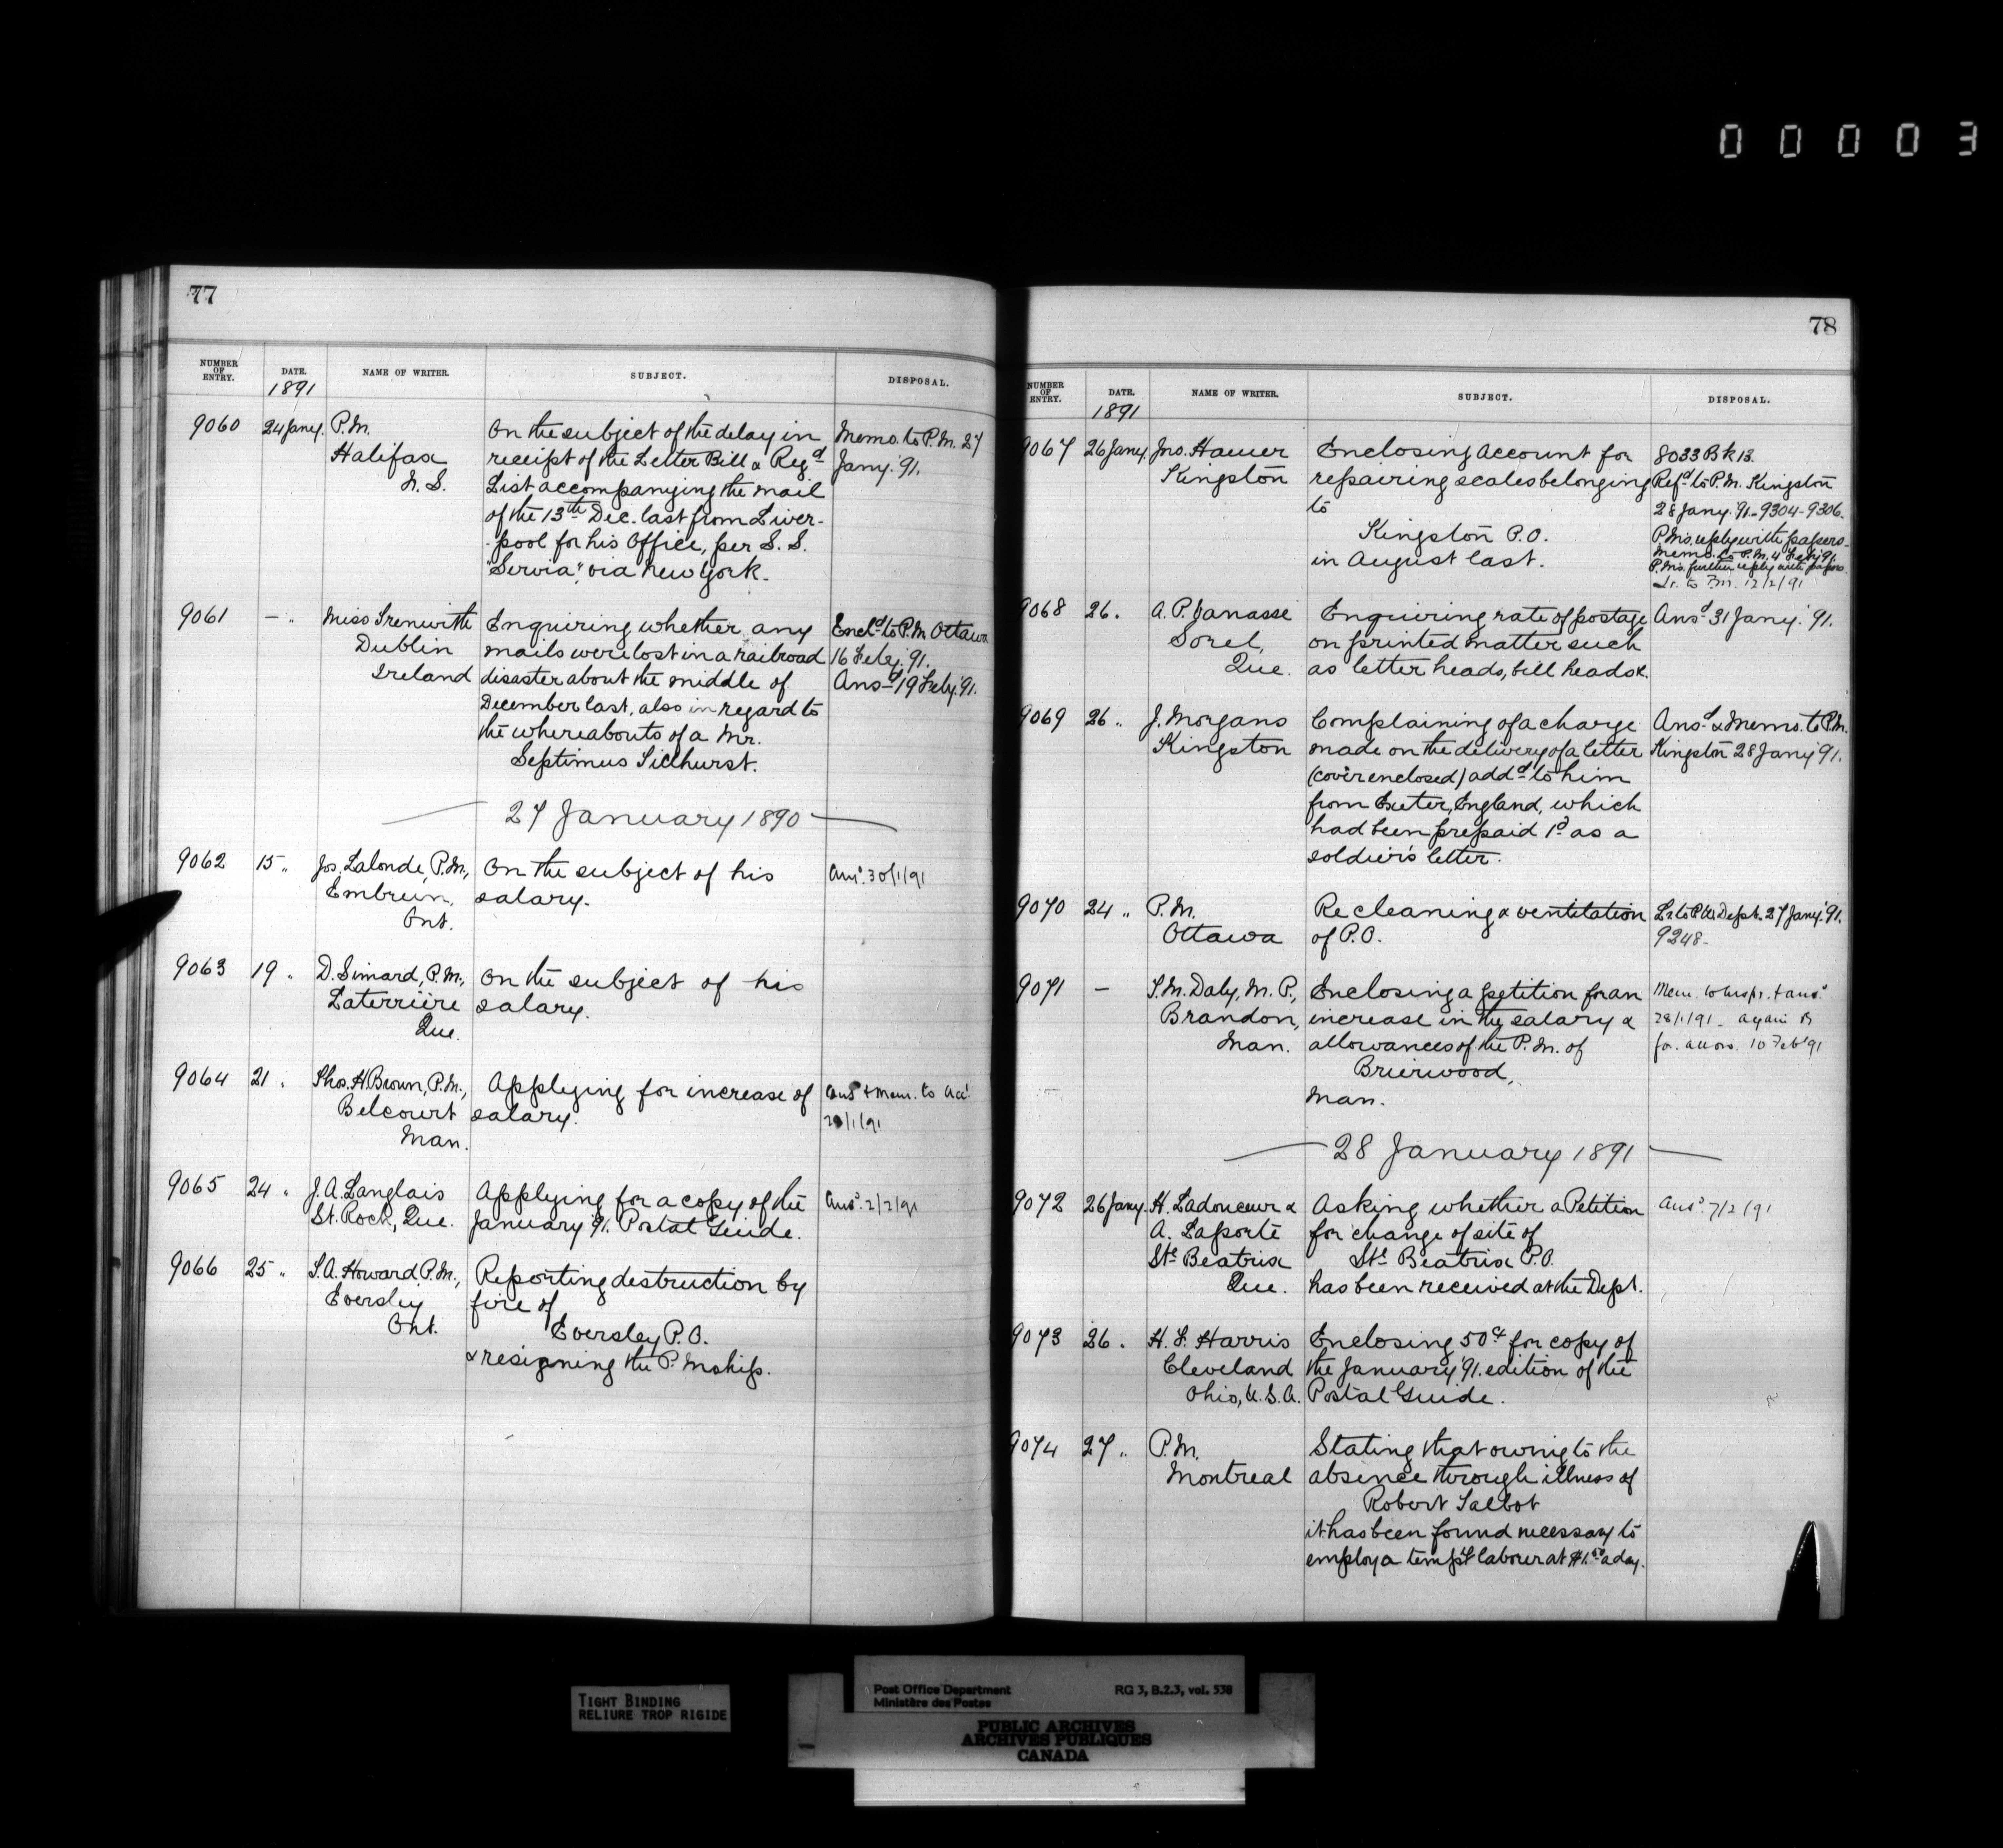 00003
77
NUMBER OF ENTRY. DATE. NAME OF WRITER. SUBJECT. DISPOSAL.
1891
9060 24 Jany. P.M. Halifax N.S.
On the subject of the delay in
receipt of the Letter Bill & Regd
List accompanying the mail
of the 13th Dec. last from Liver-
-pool for his Office, per S.S.
"Servia", via New York.
Memo. to P.M. 27
Jany. '91.
9061 - " Miss Trenwith Dublin Ireland
Enquiring whether any
mails were lost in a railroad
disaster about the middle of
December last, also in regard to
the whereabouts of a Mr.
Septimus Sillhurst.
Encd. to P.M. Ottawa
16 Feby. '91.
Ansd 19 Feby. '91.
27 January 1890
9062 15 " Jos. Lalonde, P.M., Embrun, Ont.
On the subject of his
salary.
Ansd. 30/1/91
9063 19 " D. Simard, P.M., Laterrière Que.
On the subject of his
salary.
9064 21 " Thos. H. Brown, P.M., Belcourt Man.
Applying for increase of
salary.
Ansd + Mem. to Acct
/1/91
9065 24 " J.A. Langlais St. Roch, Que.
Applying for a copy of the
January '91. Postal Guide.
Ansd. 2/2/91
9066 25 " S.A. Howard, P.M., Eversley Ont.
Reporting destruction by
fire of
Eversley P.O.
& resigning the P.Mship.
78
NUMBER OF ENTRY. DATE. NAME OF WRITER. SUBJECT. DISPOSAL.
1891
9067 26 Jany. Jno. Hauer Kingston
Enclosing account for
repairing scales belonging
to
Kingston P.O.
in August last.
8033 Bk 13.
Refd to P.M. Kingston
28 Jany. '91 - 9304 - 9306.
P.Ms. reply with papers -
Memo. to P.M. 4 Feby '91
P.Ms. further reply with papers
Lr. to P.M. 12/2/91
9068 26. A.P. Vanasse Sorel, Que.
Enquiring rate of postage
on printed matter such
as letter heads, bill heads &.
Ansd 31 Jany. '91.
9069 26 " J. Morgans Kingston
Complaining of a charge
made on the delivery of a letter
(cover enclosed) addd to him
from Exeter, England, which
had been prepaid 1d as a
soldier's letter.
Ansd & Memo. to P.M.
Kingston 28 Jany '91.
9070 24 " P.M. Ottawa
Re cleaning & ventilation
of P.O.
Lr. to P.W. Dept. 27 Jany. '91.
9248 -
9071 - T.M. Daly, M.P., Brandon, Man.
Enclosing a petition for an
increase in the salary &
allowances of the P.M. of
Brierwood,
Man.
Mem. to Inspr. + ansd
28/1/91 - again
10 Feb '91
28 January 1891
9072 26 Jany. H. Ladouceur & A. Laporte Ste Beatrix Que.
Asking whether a Petition
for change of site of
Ste Beatrix P.O.
has been received at the Dept.
Ansd. 7/2/91
9073 26. H.F. Harris Cleveland Ohio, U.S.A.
Enclosing 50cts for copy of
the January '91. edition of the
Postal Guide.
9074 27 " P.M. Montreal
Stating that owing to the
absence through illness of
Robert Talbot
it has been found necessary to
employ a temp labourer at $1.50 a day.
TIGHT BINDING
RELIURE TROP RIGIDE
Post Office Department RG 3, B.2.3, vol. 538
Ministère des Postes
PUBLIC ARCHIVES
ARCHIVES PUBLIQUES
CANADA